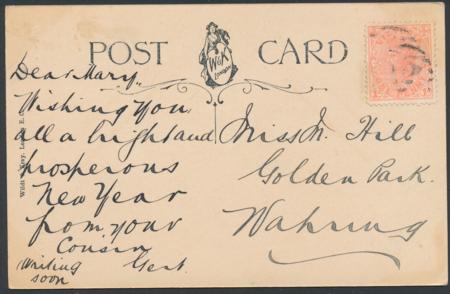 POST CARD
W&K
LONDON
Dear Mary,
Wishing you
all a bright and
prosperous
New Year
from your
Cousin
Gert.
Writing
soon
Miss M. Hill
Golden Park.
Wahring
Wildt & Kray, London, E.C.